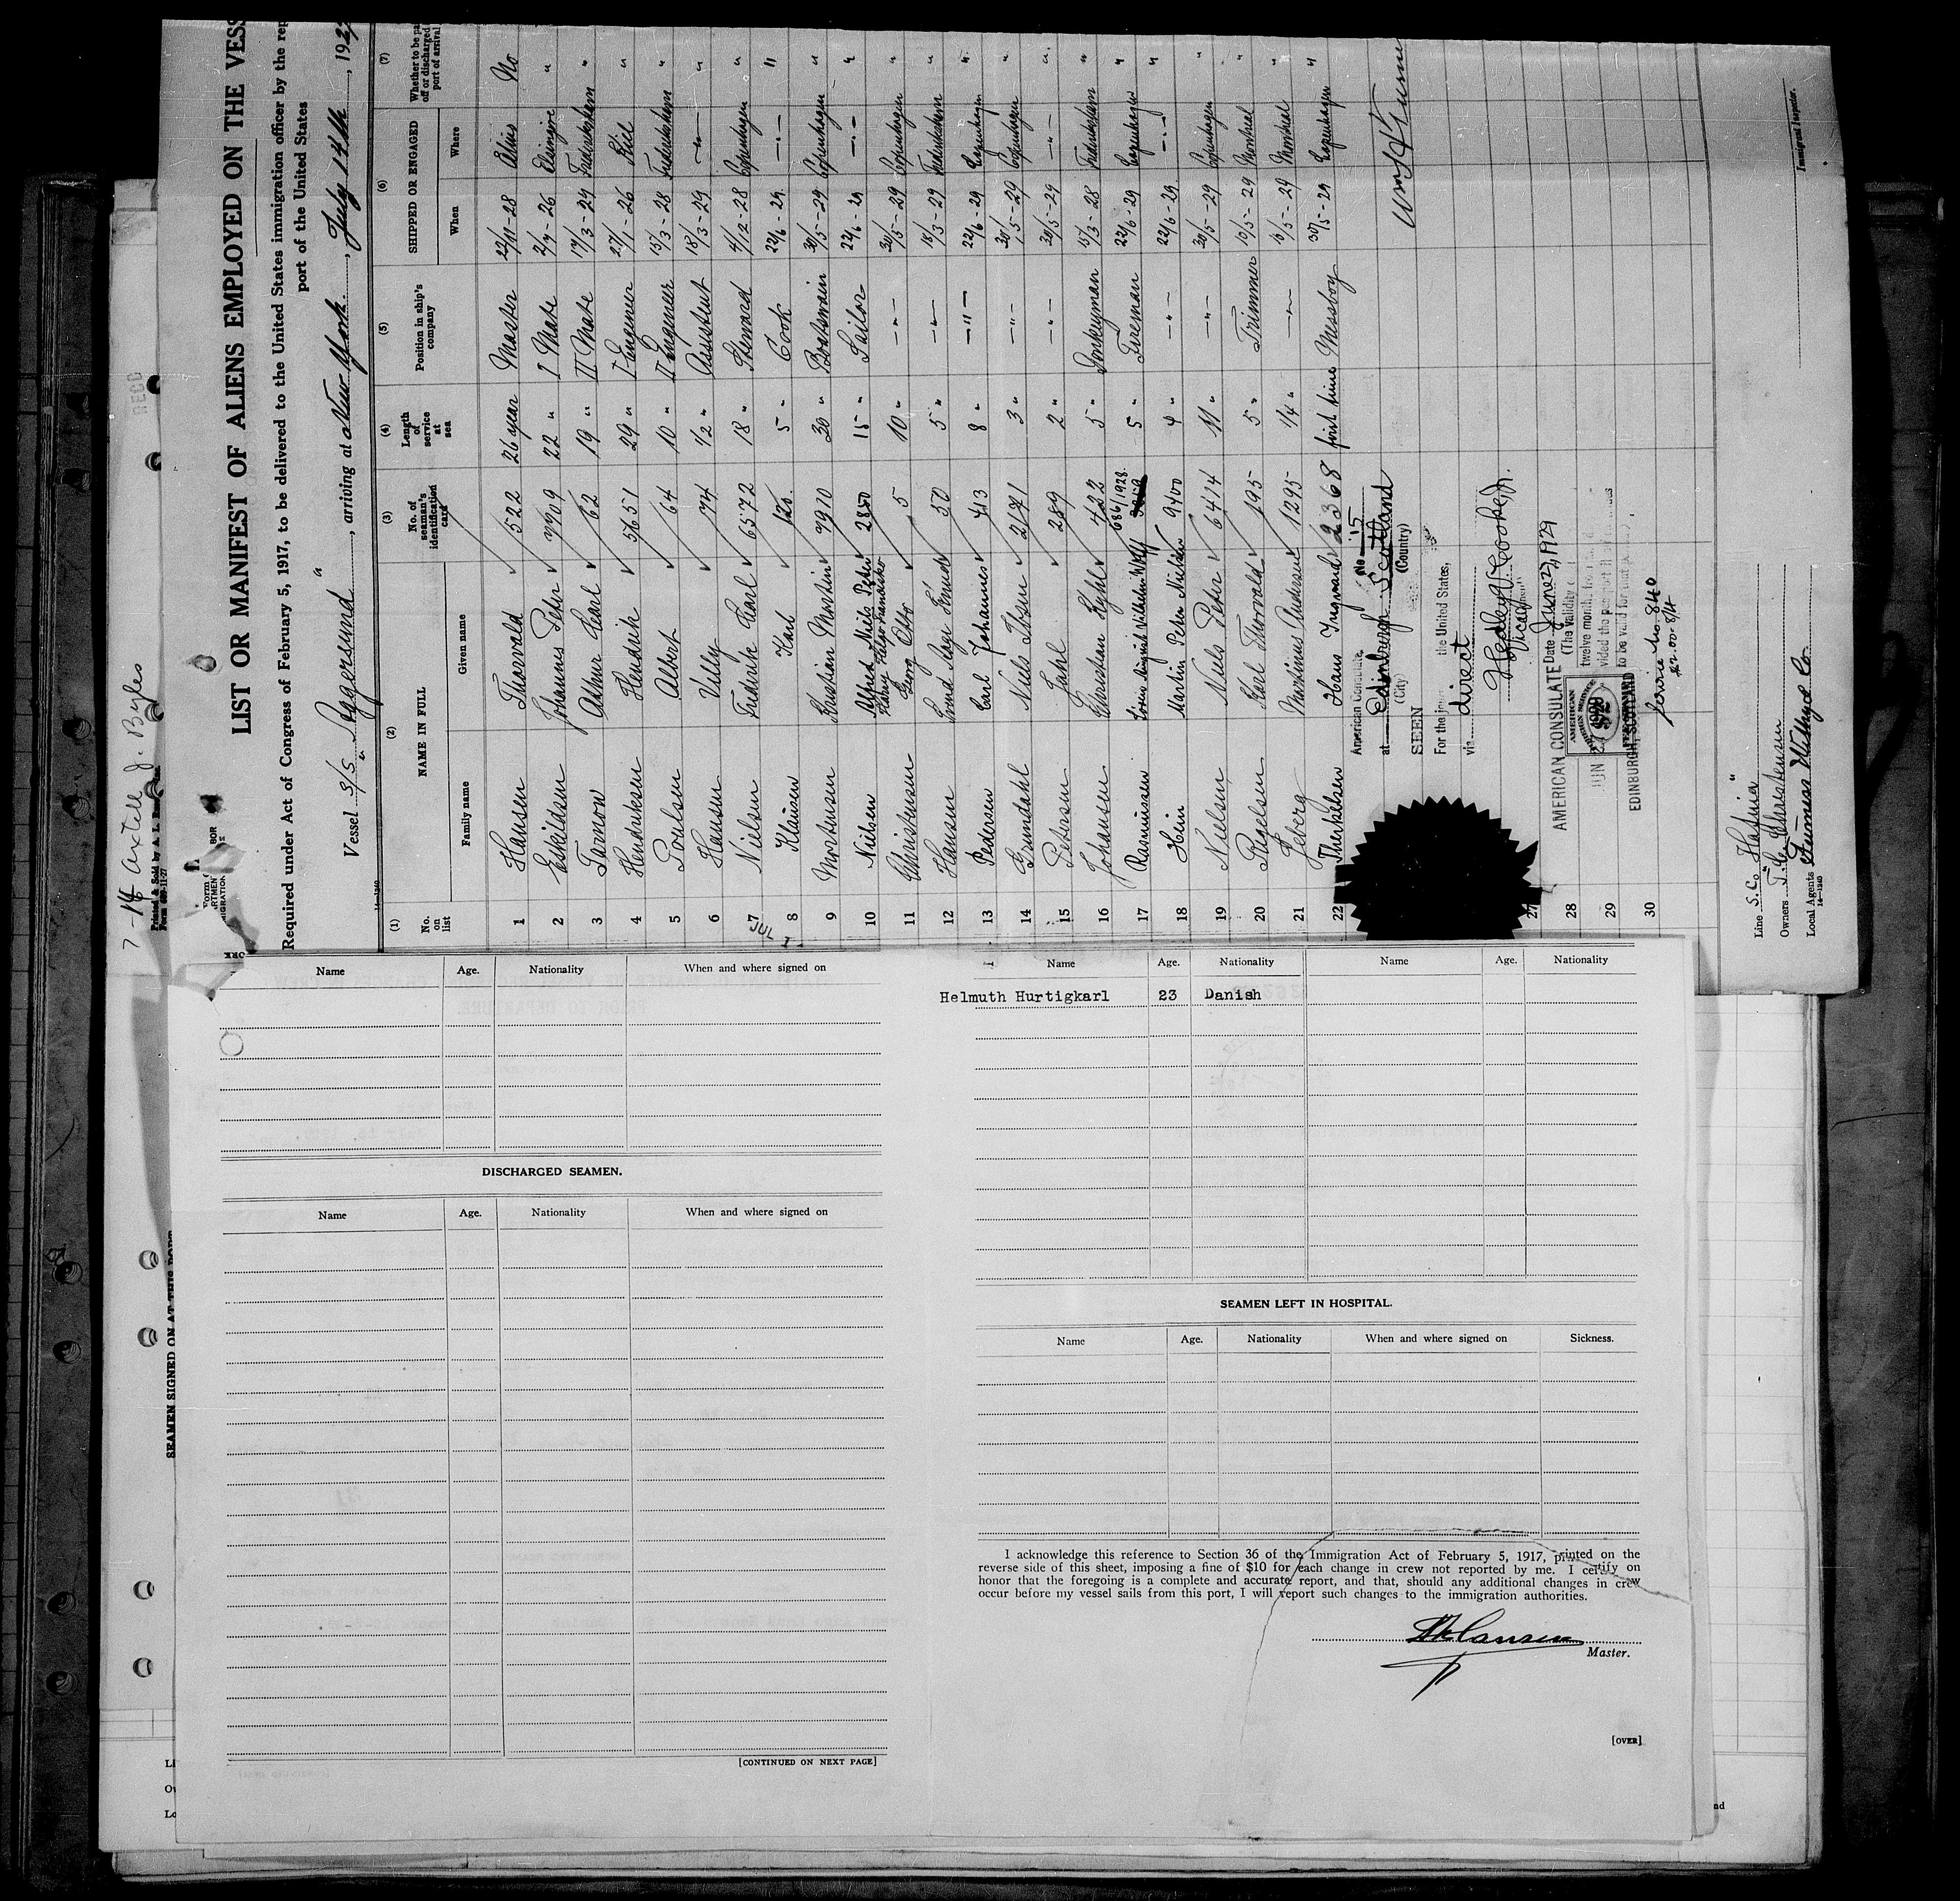 7-14 Axtell J. Byles
LIST OR MANIFEST OF ALIENS EMPLOYED ON THE VESS
Required under Act of Congress of February 5, 1917, to be delivered to the United States immigration officer by the rep
port of the United States
Vessel S/S "Aggersund", arriving at New York, July 14th, 192
(1) (2) (3) (4) (5) (6) (7)
No. on list NAME IN FULL No. of seaman's identification card Length of service at sea Position in ship's company SHIPPED OR ENGAGED Whether to be pa off or discharged port of arrival
Family name Given name When Where
1 Hansen Thorvald 522 26 year Master 22/11-28 No
2 Eskildsen Johannes Peter 22 " I Mate 26 "
3 Tarnow Arthur Carl 62 19 " II Mate 17/3-29 Frederikshavn "
4 Hendriksen Hendrik 5651 29 " I Engineer 27/1-26 Kiel "
5 Poulsen Albert 64 10 " II Engineer 15/3-28 Frederikshavn "
6 Hansen Villy 74 1/2 " Assistent 18/3-29 —"— "
7 Nielsen Frederik Karl 6572 18 " Steward 4/12-28 Copenhagen "
8 Klausen Karl 120 5 " Cook 22/6-29 —"— "
9 Mortensen Kristian Martin 7910 30 " Boatswain 30/5-29 Copenhagen "
10 Nielsen Alfred Niels Peder 2850 15 " Sailor 22/6-29 —"— "
11 Christensen Georg Otto 5 10 " —"— 30/5-29 Copenhagen "
12 Hansen Svend Aage Knud 50 5 " —"— 18/3-29 Frederikshavn "
13 Pedersen Carl Johannes 413 8 " —"— 22/6-29 Copenhagen "
14 Grundahl Niels Ibsen 2171 3 " —"— 30/5-29 Copenhagen "
15 Petersen 289 2 " —"— 30/5-29 —"— "
16 Johansen Christian Kyhl 422 5 " Donkeyman 15/3-28 Frederikshavn "
17 Rasmussen Louis August Vilhelm Wolff 686/1928 5 " Fireman 22/6-29 Copenhagen "
18 Hein Martin Peter Nielsen 9400 4 " —"— 22/6-29 —"—
19 Nielsen Niels Peter 6414 11 " —"— 30/5-29 Copenhagen "
20 Karl Thorvald 195 5 " Trimmer 10/5-29 Montreal "
21 Jeberg Martinus Andersen 1295 1/4 " —"— 10/5-29 Montreal "
22 Therkelsen Hans Ingvard 2368 first time Messboy 30/5-29 Copenhagen "
27
28
29
30
American Consulate No 15
at Edinburgh Scotland
(City) (Country)
SEEN
For the the United States,
via direct
Hedley V. Cooke Jr.
AMERICAN CONSULATE Date June 27, 1929
(The Validity
twelve months
vided the passport
to be valid for
AMERICAN
FOREIGN SERVICE
$2
EDINBURGH, SCOTLAND
Service No. 840
Line S.Co. "Hafnia"
Owners T. C. Christensen
Local Agents Funness Withy & Co.
Immigrant Inspector.
JUL
SEAMEN SIGNED ON AT THIS PORT
Name Age. Nationality When and where signed on
DISCHARGED SEAMEN.
Name Age. Nationality When and where signed on
[CONTINUED ON NEXT PAGE]
Name Age. Nationality Name Age. Nationality
Helmuth Hurtigkarl 23 Danish
SEAMEN LEFT IN HOSPITAL.
Name Age. Nationality When and where signed on Sickness.
I acknowledge this reference to Section 36 of the Immigration Act of February 5, 1917, printed on the
reverse side of this sheet, imposing a fine of $10 for each change in crew not reported by me. I certify on
honor that the foregoing is a complete and accurate report, and that, should any additional changes in crew
occur before my vessel sails from this port, I will report such changes to the immigration authorities.
Th Hansen
Master.
[OVER]